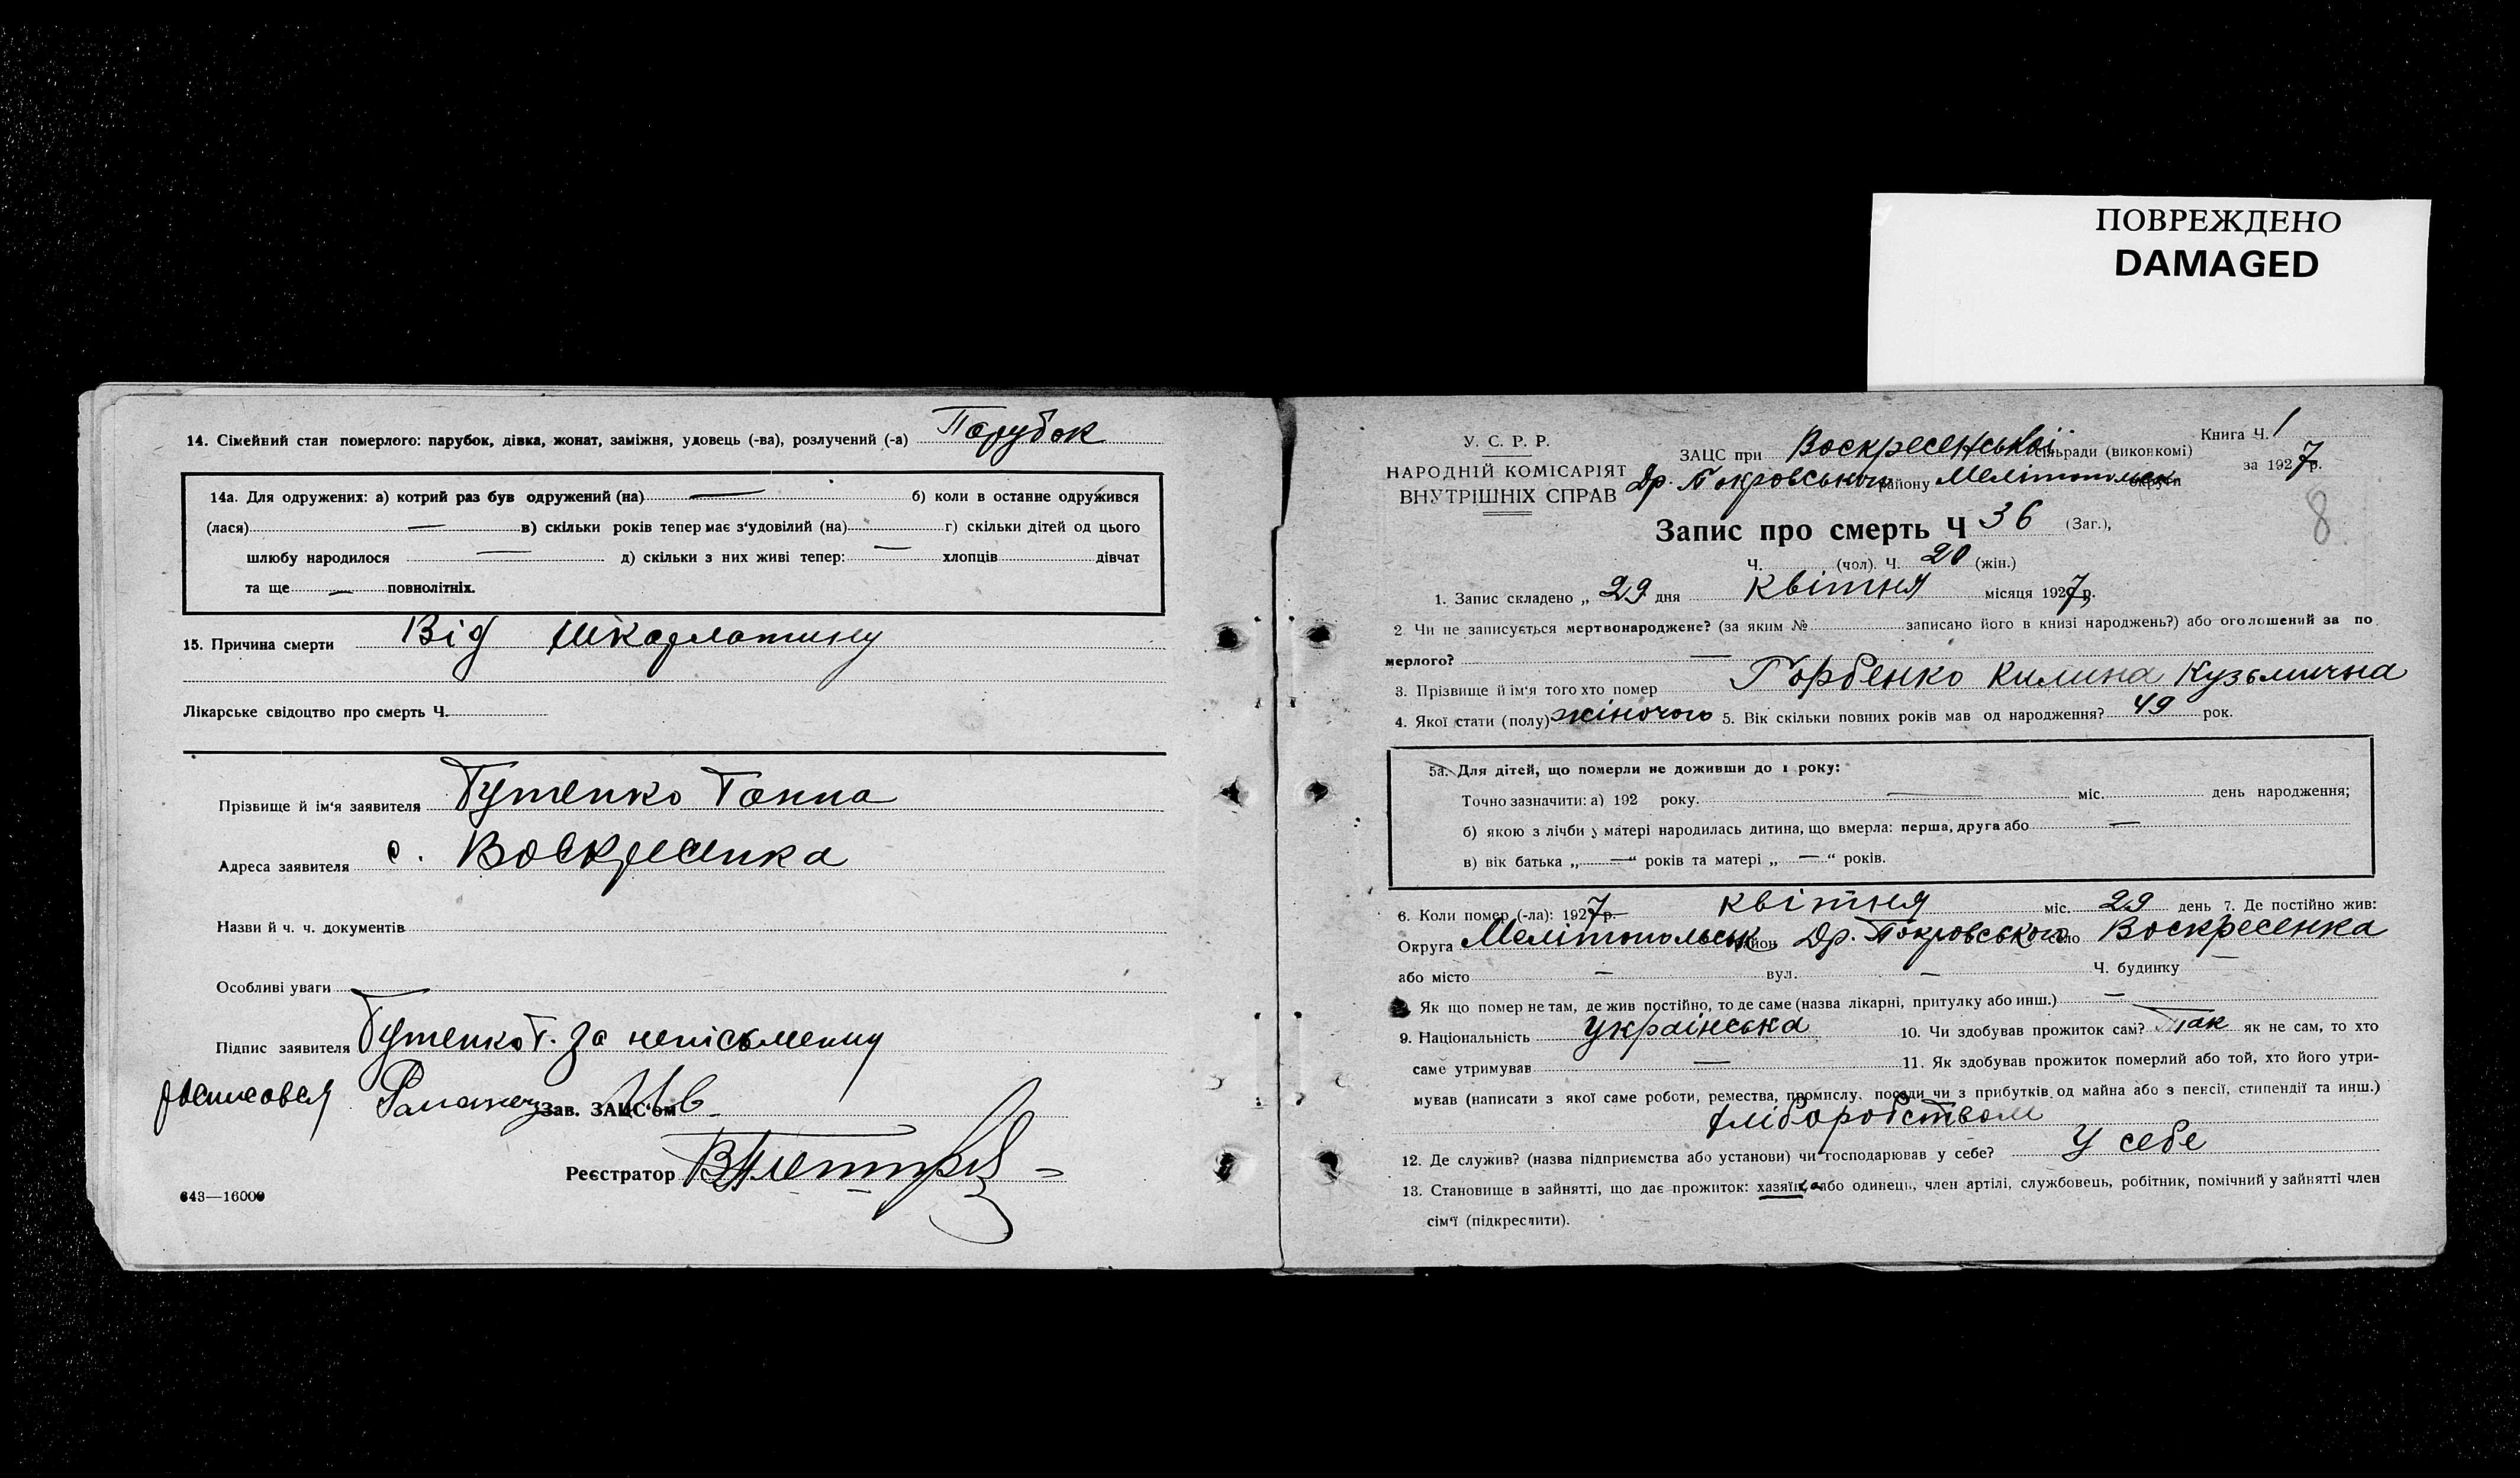 ПОВРЕЖДЕНО
DAMAGED
14. Сімейний стан померлого: парубок, дівка, жонат, заміжня, удовець (-ва), розлучений (-а) Парубок
14а. Для одружених: а) котрий раз був одружений (на) — б) коли в останне одружився
(лася) — в) скільки років тепер має з'удовілий (на) г) скільки дітей од цього
шлюбу народилося — д) скільки з них живі тепер: — хлопців дівчат
та ще — повнолітніх.
15. Причина смерти Від шкарлатину
Лікарське свідоцтво про смерть Ч.
Прізвище й ім'я заявителя Гутенко Ганна
Адреса заявителя с. Воскресенка
Назви й ч. ч. документів
Особливі уваги
Підпис заявителя Гутенко Г. За неписьменну
Зав. ЗАЦС'ом
Реєстратор
643—16000
У. С. Р. Р.
НАРОДНІЙ КОМІСАРІЯТ
ВНУТРІШНІХ СПРАВ
Книга Ч. 1
ЗАЦС при Воскресенській сільради (виконкомі)
за 1927 р.
Др. Покровського району Мелітопольск округи
8
Запис про смерть Ч 36 (Заг.),
Ч. (чол). Ч. 20 (жін.)
1. Запис складено „ 29 дня квітня місяця 1927 р.
2 Чи не записується мертвонароджене? (за яким № записано його в книзі народжень?) або оголошений за по
мерлого? —
3. Прізвище й ім'я того хто помер Горбенко Килина Кузьмична
4. Якої стати (полу) жіночого 5. Вік скільки повних років мав од народження? 49 рок.
5а. Для дітей, що померли не доживши до 1 року:
Точно зазначити: а) 192 року. — міс. день народження;
б) якою з лічби у матері народилась дитина, що вмерла: перша, друга або —
в) вік батька „ — “ років та матері „ — “ років.
6. Коли помер (-ла): 1927 р. квітня міс. 29 день 7. Де постійно жив:
Округа Мелітопольськ район Др. Покровського село Воскресенка
або місто — вул. — Ч. будинку —
Як що помер не там, де жив постійно, то де саме (назва лікарні, притулку або инш.) —
9. Національність українська 10. Чи здобував прожиток сам? Так як не сам, то хто
саме утримував — 11. Як здобував прожиток померлий або той, хто його утри-
мував (написати з якої саме роботи, ремества, промислу, посади чи з прибутків од майна або з пенсії, стипендії та инш.)
хліборобством
12. Де служив? (назва підприємства або установи) чи господарював у себе? У себе
13. Становище в зайнятті, що дає прожиток: хазяїн, або одинець, член артілі, службовець, робітник, помічний у зайнятті член
сім'ї (підкреслити).